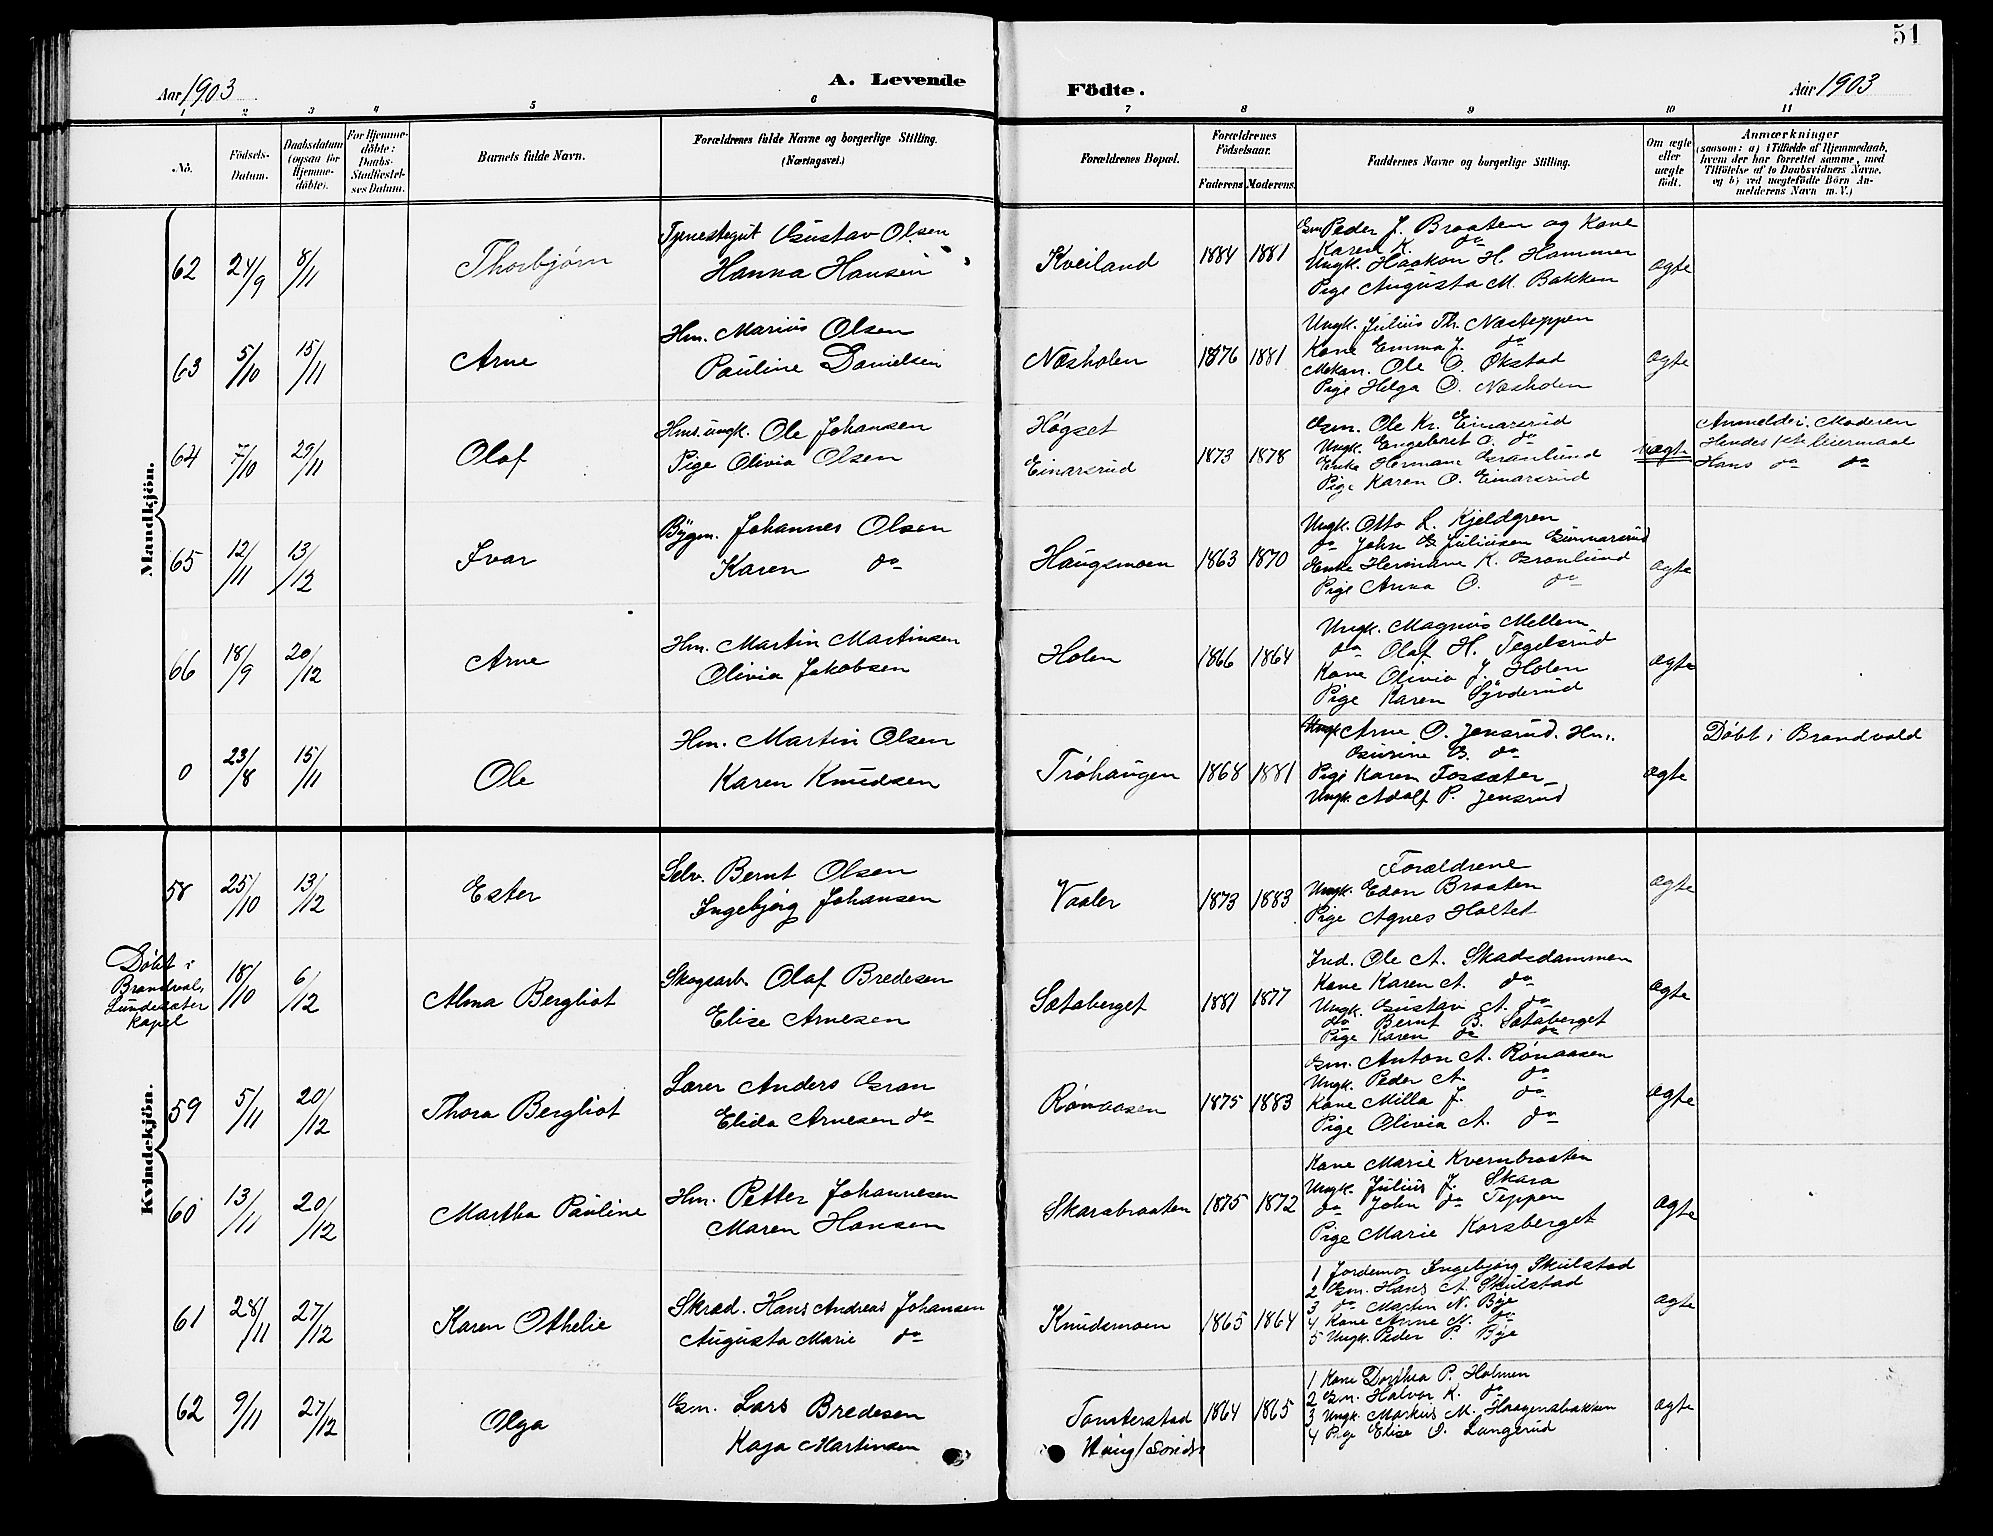 51
Aar 1903
A. Levende
Födte.
Aar 1903
1 2 3 4 5 6 7 8 9 10 11
No.
Födsels-
Datum.
Daabsdatum
(ogsaa for
Hjemme-
döbte).
For Hjemme-
döbte:
Daabs-
Stadfæstel-
ses Datum.
Barnets fulde Navn.
Forældrenes fulde Navne og borgerlige Stilling.
(Næringsvei.)
Forældrenes Bopæl.
Forældrenes
Födselsaar.
Faderens Moderens.
Faddernes Navne og borgerlige Stilling.
Om ægte
eller
uægte
födt.
Anmærkninger
(saasom: a) i Tilfælde af Hjemmedaab,
hvem der har forrettet samme, med
Tilföielse af to Daabsvidners Navne,
og b) ved uægtefödte Börn An-
melderens Navn m. V.)
Mandkjön.
62 24/9 8/11 Thorbjørn
Tjenestegut Gustav Olsen
Hanna Hansen
Kveiland 1884 1881
Gm Peder J. Braaten og Kone
Karen K. do
Ungk. Haakon H. Hammer
Pige Augusta M. Bakken
ægte
63 5/10 15/11 Arne
Hm. Marius Olsen
Pauline Danielsen
Næsholen 1876 1881
Ungk. Julius Th. Næsteppen
Kone Emma J. do
Mekan. Ole O. Økstad
Pige Helga O. Næsholen
ægte
64 7/10 29/11 Olaf
Hms. ungk. Ole Johansen
Pige Olivia Olsen
Høgset
Einarsrud
1873 1878
Gm. Ole Kr. Einarsrud
Ungk. Engebret O. do
Enke Hermane Granlund
Pige Karen O. Einarsrud
uægte
Anmelder: Moderen
Hendes 1ste leiermaal
Hans do do
65 12/11 13/12 Ivar
Bygm. Johannes Olsen
Karen do
Haugsmoen 1863 1870
Ungk. Otto L. Kjeldgren
do John G Juliusen Gunnarsrud
Enke Hermane K. Granlund
Pige Anna O. do
ægte
66 18/9 20/12 Arne
Hm. Martin Martinsen
Olivia Jakobsen
Holen 1866 1864
Ungk. Magnus Mellem
do Olaf H. Tegelsrud
Kone Olivia J. Holen
Pige Karen Synderud
ægte
0 23/8 15/11 Ole
Hm. Martin Olsen
Karen Knudsen
Trøhaugen 1868 1881
Ungk Arne O. Jensrud. Hm.
Gurine G. do
Pige Karen Fossæter
Ungk. Adolf P. Jensrud
ægte
Døbt i Brandvold
Kvindekjön.
58 25/10 13/12 Ester
Selv. Bernt Olsen
Ingebjørg Johansen
Vaaler 1873 1883
Forældrene
Ungk. Edon Braaten
Pige Agnes Holtet
ægte
Døbt i
Brandval,
Lundersæter
kapel
18/10 6/12 Alma Bergliot
Skogsarb. Olaf Bredesen
Elise Arnesen
Sætaberget 1881 1877
Ind. Ole A. Skadsdammen
Kone Karen A. do
Ungk. Gustav A. do
do Bernt B. Sætaberget
Pige Karen do do
ægte
59 5/11 20/12 Thora Bergliot
Lærer Anders Gran
Elida Arnesen do
Rønaasen 1875 1883
Gm. Anton A. Rønaasen
Ungk. Peder A. do
Kone Milla J. do
Pige Olivia A. do
ægte
60 13/11 20/12 Martha Pauline
Hm. Petter Johannesen
Maren Hansen
Skarabraaten 1875 1872
Kone Marie Kvernbraaten
Ungk. Julius J. Skara
do John do Teppen
Pige Marie Korsberget
ægte
61 28/11 27/12 Karen Othelie
Skræd. Hans Andreas Johansen
Augusta Marie do
Knudsmoen 1865 1864
1 Jordemor Ingebjørg Skulstad
2 Gm. Hans A. Skulstad
3 do Martin N. Bye
4 Kone Anne M. do
5 Ungk. Peder P. Bye
ægte
62 9/11 27/12 Olga
Gm. Lars Bredesen
Kaja Martinsen
Tomterstad 1864 1865
1 Kone Dorthea P. Holmen
2 Gm. Halvor K. do
3 Ungk. Markus M. Haagensbakken
4 Pige Elise O. Langerud
ægte